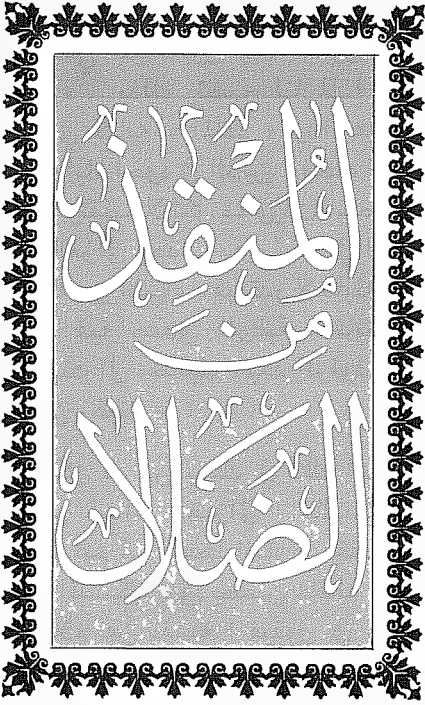 المُنْقِذ
مِن
الضَلال